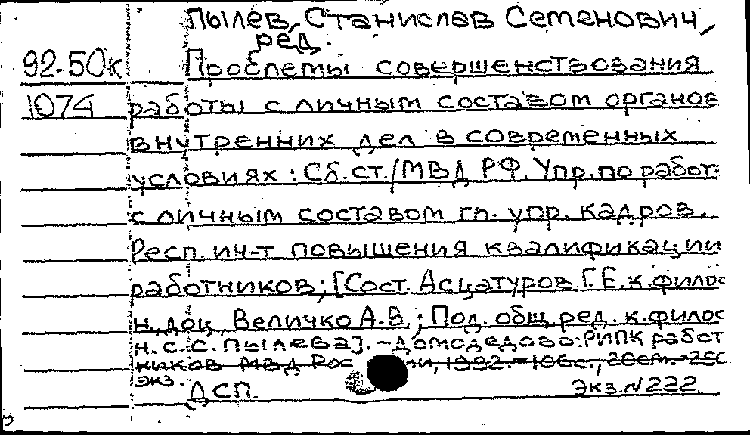 Пылев, Станислав Семенович,
ред.
92-50к Проблемы совершенствования
1074 работы с личным составом органов
внутренних дел в современных
условиях: Сб.ст./МВД РФ. Упр. по работ
с личным составом гл. упр. кадров.
Респ. ин-т повышения квалификации
работников; [Сост. Асцатуров Г.Е. к. филос
н., доц. Величко А.В.; Под. общ. ред. к. филос
н. С.С. Пылева]. - Домодедово: РИПК работ
ников МВД Рос ии, 1992. - 106с.;
экз.
ДСП. Экз. N 222